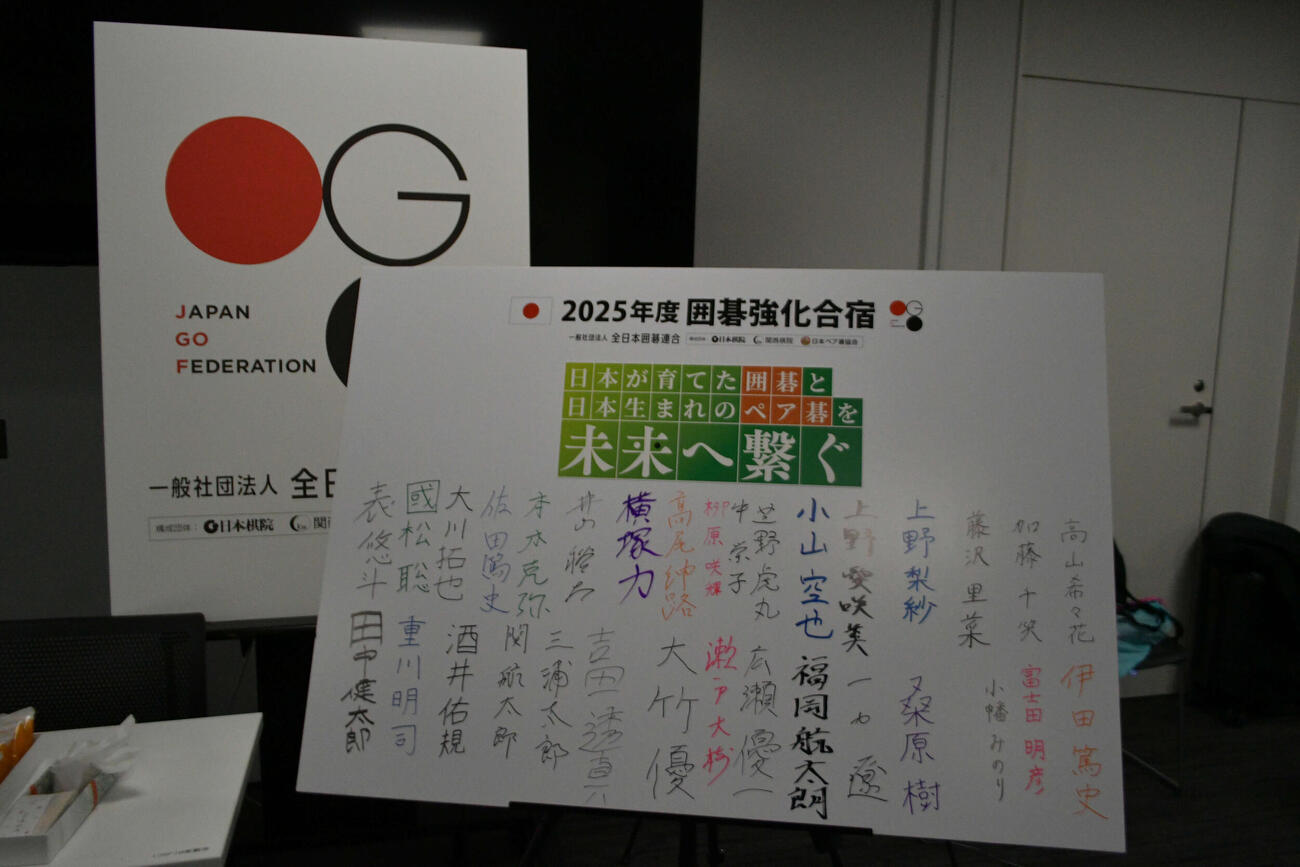 G
JAPAN
GO
FEDERATION
一般社団法人 全日
構成団体: 日本棋院 関
2025年度 囲碁強化合宿
一般社団法人 全日本囲碁連合 構成団体: 日本棋院 関西棋院 日本ペア碁協会
日本が育てた囲碁と
日本生まれのペア碁を
未来へ繋ぐ
高山希々花
加藤千笑
藤沢里菜
上野梨紗
上野愛咲美
小山空也
芝野虎丸
中 栄子
柳原咲輝
高尾紳路
横塚力
井山裕太
本木克弥
佐田篤史
大川拓也
國松聡
表悠斗
伊田篤史
富士田明彦
小幡みのり
桑原樹
一力遼
福岡航太朗
広瀬優一
瀬戸大樹
大竹優
三浦太郎
関航太郎
酒井佑規
重川明司
田中健太郎